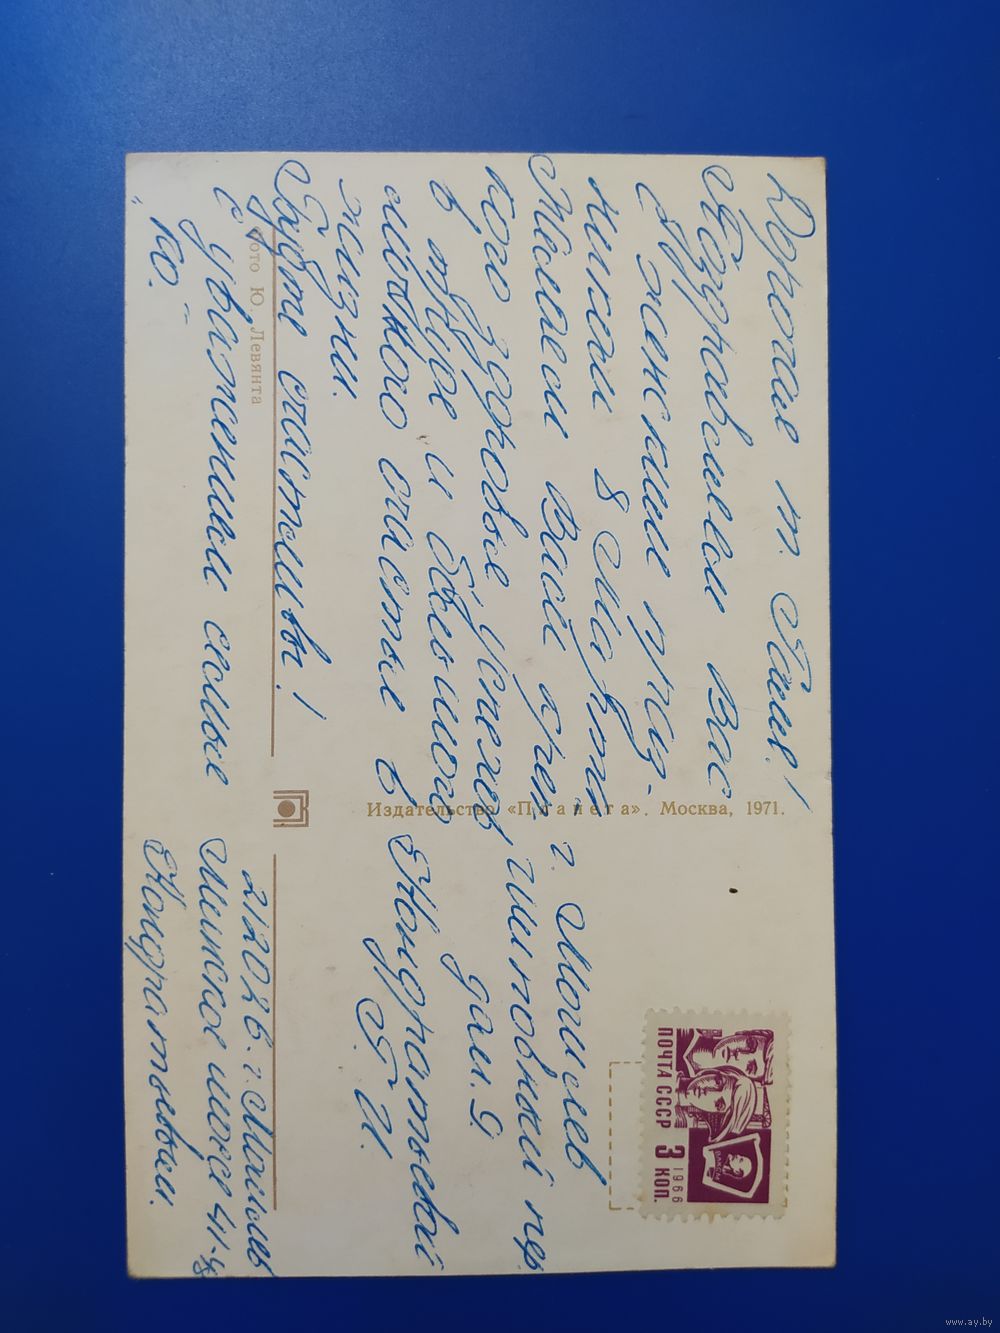 Дорогая т. Галя!
Поздравляем Вас
с женским празд-
ником 8 Марта
Желаем Вам креп-
кого здоровья, успехов
в труде и большого
счастья в
жизни.
Будьте счастливы!
С уважением семья
"Ю."
Фото Ю. Левянта
Издательство «Планета». Москва, 1971.
г. Могилев
пер
дом 9.
Кондратьевой
Г. И.
212026 г. Могилев
Минское шоссе 41-
Кондратьевы.
ПОЧТА СССР
1966
3 КОП.
ВЛКСМ
www.ay.by